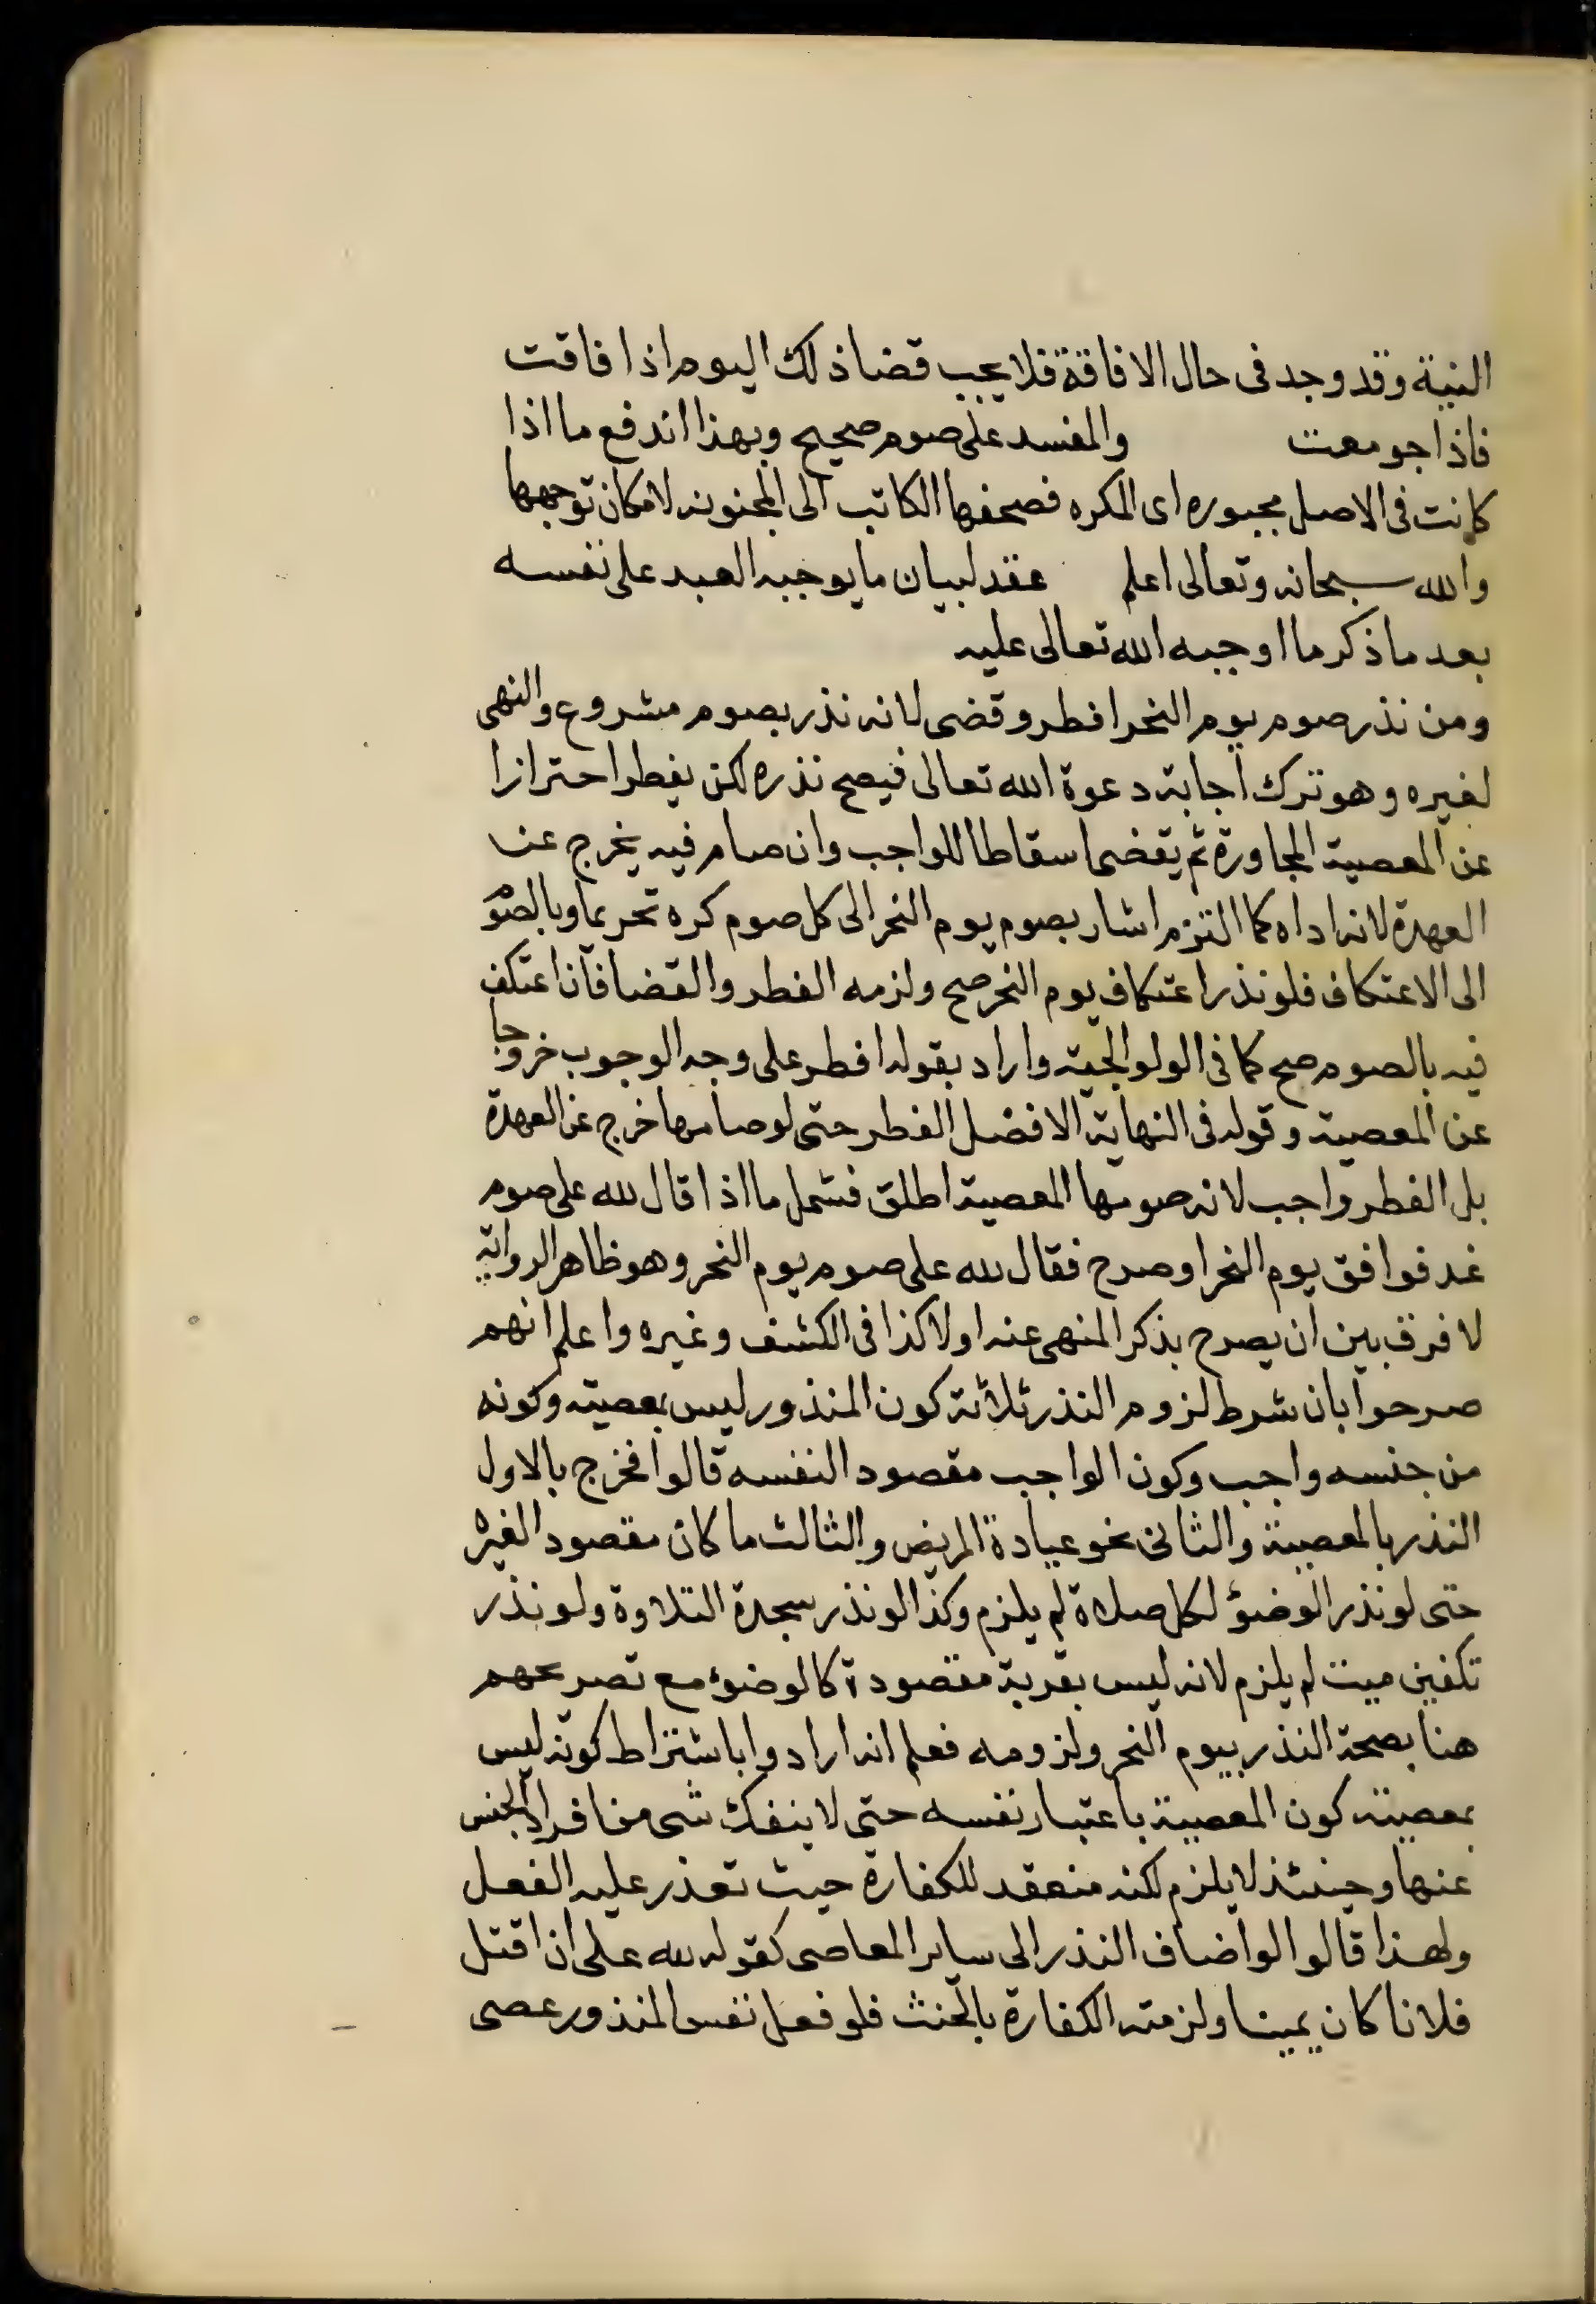 النية وقد وجد فى حال الافاقة فلا يجب قضا ذلك اليوم اذا فاقت
فاذا جومعت والمفسد على صوم صحيح وبهذا اندفع ما اذا
كانت فى الاصل مجبوره اى المكره فصحفها الكاتب الى المجنونه لامكان توجهها
والله سبحانه وتعالى اعلم عقد لبيان ما يوجبه العبد على نفسه
بعد ما ذكر ما اوجبه الله تعالى عليه
ومن نذر صوم يوم النحر افطر وقضى لانه نذر بصوم مشروع والنهى
لغيره وهو ترك اجابة دعوة الله تعالى فيصح نذره لكن يفطر احترازا
عن المعصية المجاورة ثم يقضى اسقاطا للواجب وان صام فيه يخرج عن
العهدة لانه اداه كما التزم اشار بصوم يوم النحر الى كل صوم كره تحريما وبالصوم
الى الاعتكاف فلو نذر اعتكاف يوم النحر صح ولزمه الفطر والقضا فان اعتكف
فيه بالصوم صح كما فى الولوالجية واراد بقوله افطر على وجه الوجوب خروجا
عن المعصية وقوله فى النهاية الافضل الفطر حتى لو صامها خرج عن العهدة
بل الفطر واجب لانه صومها المعصية اطلق فشمل ما اذا قال لله على صوم
غد فوافق يوم النحر او صرح فقال لله على صوم يوم النحر وهو ظاهر الرواية
لا فرق بين ان يصرح بذكر المنهى عنه اولا كذا فى الكشف وغيره واعلم انهم
صرحوا بان شرط لزوم النذر ثلاثة كون المنذور ليس بمعصية وكونه
من جنسه واجب وكون الواجب مقصود النفسه قالوا فخرج بالاول
النذر بالمعصية والثانى نحو عيادة المريض والثالث ما كان مقصود الغيره
حتى لو نذر الوضوء لكل صلاة لم يلزم وكذا لو نذر سجدة التلاوة ولو نذر
تكفين ميت لم يلزم لانه ليس بقربة مقصودة كالوضوء مع تصريحهم
هنا بصحة النذر بيوم النحر ولزومه فعلم انه ارادوا باشتراط كونه ليس
بمعصية كون المعصية باعتبار نفسه حتى لا ينفك شى من افراد الجنس
عنها وحينئذ لا يلزم لكنه منعقد للكفارة حيث تعذر عليه الفعل
ولهذا قالوا لو اضاف النذر الى ساير المعاصى كقوله لله على ان اقتل
فلانا كان يمينا ولزمته الكفارة بالحنث فلو فعل نفس المنذور عصى